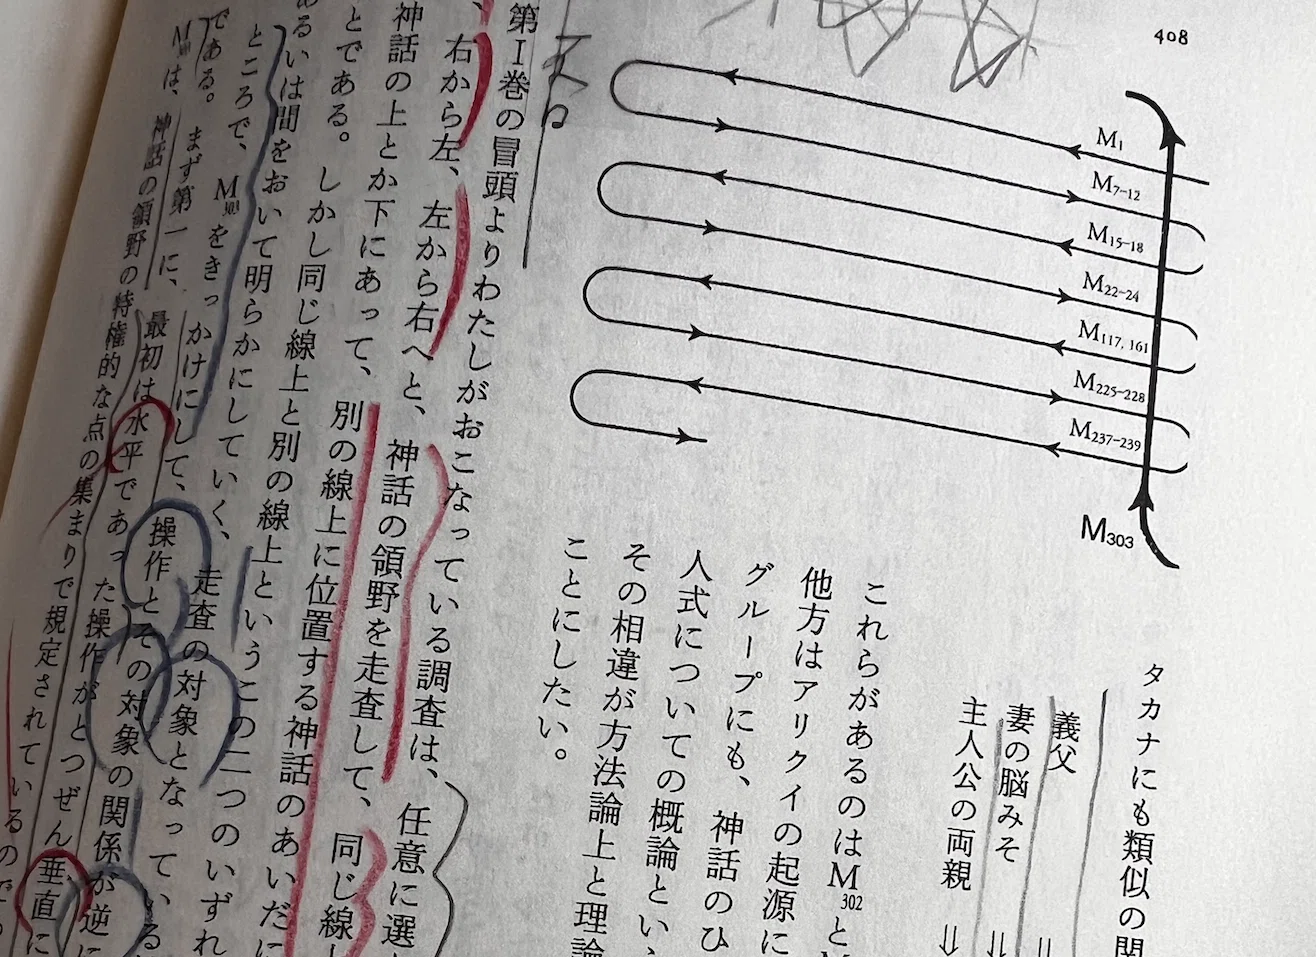 408
M1
M7-12
M15-18
M22-24
M117, 161
M225-228
M237-239
M303
タカナにも類似の関
義父 ⇓
妻の脳みそ ⇓
主人公の両親 ⇓
これらがあるのはM302と
他方はアリクイの起源に
グループにも、神話のひ
人式についての概論とい
その相違が方法論上と理論
ことにしたい。
第I巻の冒頭よりわたしがおこなっている調査は、任意に選
、右から左、左から右へと、神話の領野を走査して、同じ線
神話の上とか下にあって、別の線上に位置する神話のあいだに
とである。しかし同じ線上と別の線上というこの二つのいずれ
あるいは間をおいて明らかにしていく、走査の対象となっている
ところで、M303をきっかけにして、操作とその対象の関係が逆に
である。まず第一に、最初は水平であった操作がとつぜん垂直に
M303は、神話の領野の特権的な点の集まりで規定されているので